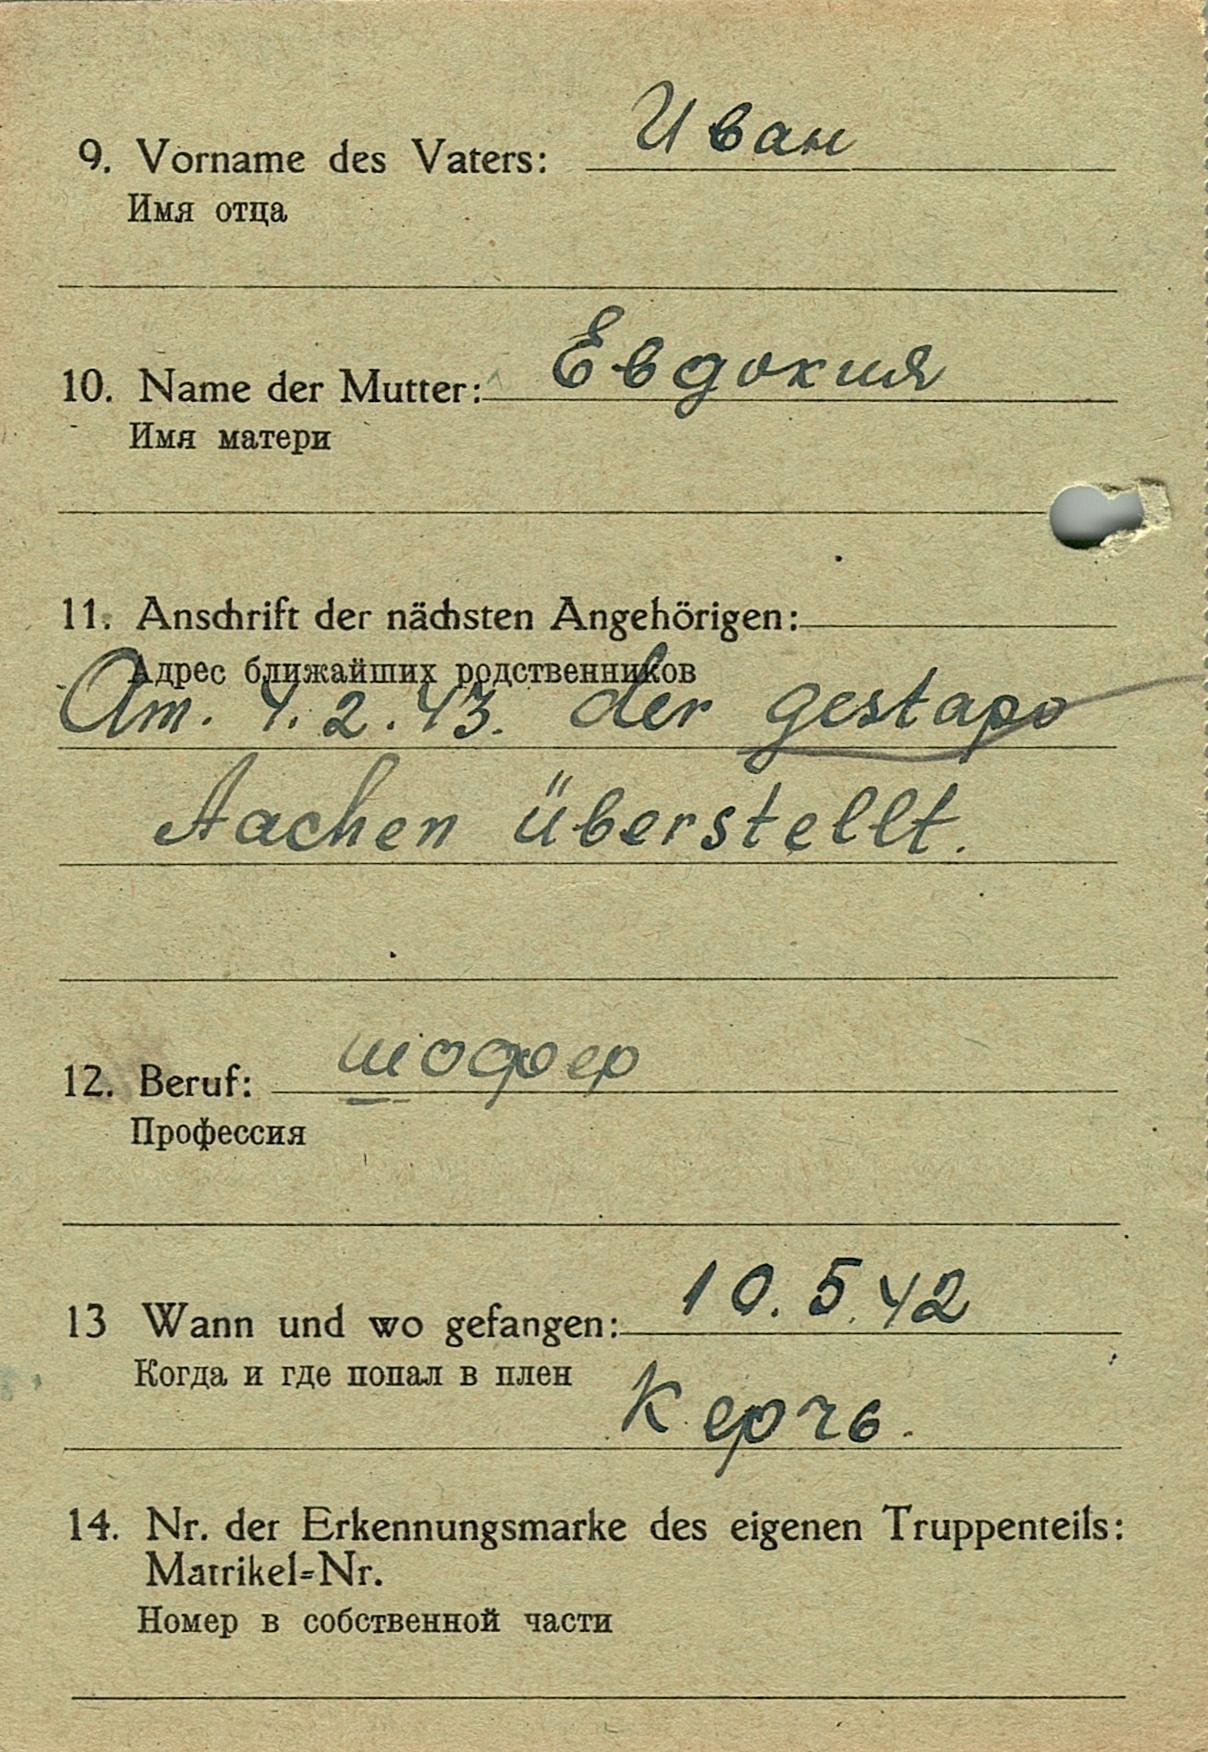 9. Vorname des Vaters: Иван
Имя отца
10. Name der Mutter: Евдокия
Имя матери
11. Anschrift der nächsten Angehörigen:
Адрес ближайших родственников
Am. 4.2.43. der gestapo
Aachen überstellt.
12. Beruf: шофер
Профессия
13 Wann und wo gefangen: 10.5.42
Когда и где попал в плен
Керчь.
14. Nr. der Erkennungsmarke des eigenen Truppenteils:
Matrikel=Nr.
Номер в собственной части